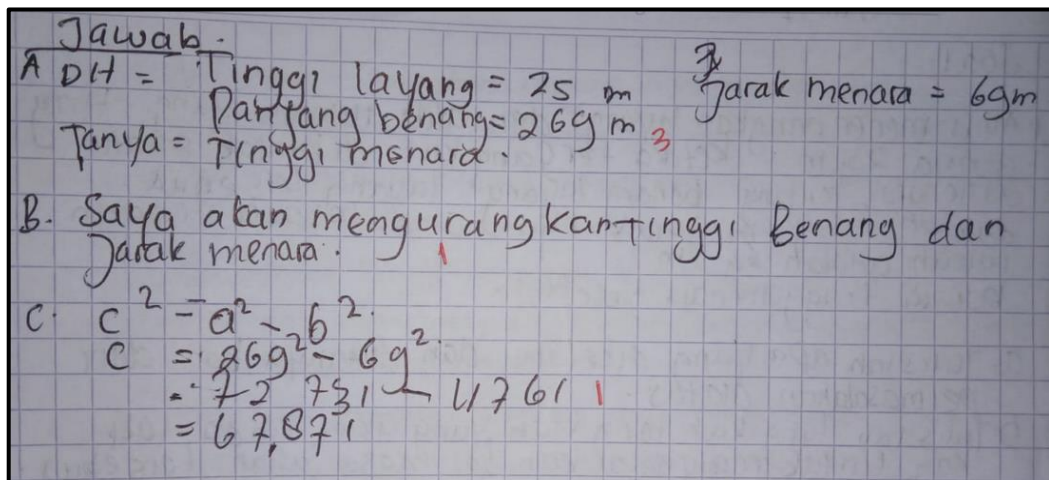 Jawab.
A DH = Tinggi layang = 25 m Jarak menara = 69m
Panjang benang = 269 m 3
Tanya = Tinggi menara.
B. Saya akan mengurangkan tinggi Benang dan
Jarak menara. 1
C. c² = a² - b².
C = 269² - 69².
= 72 731 - 4761 1
= 67,871